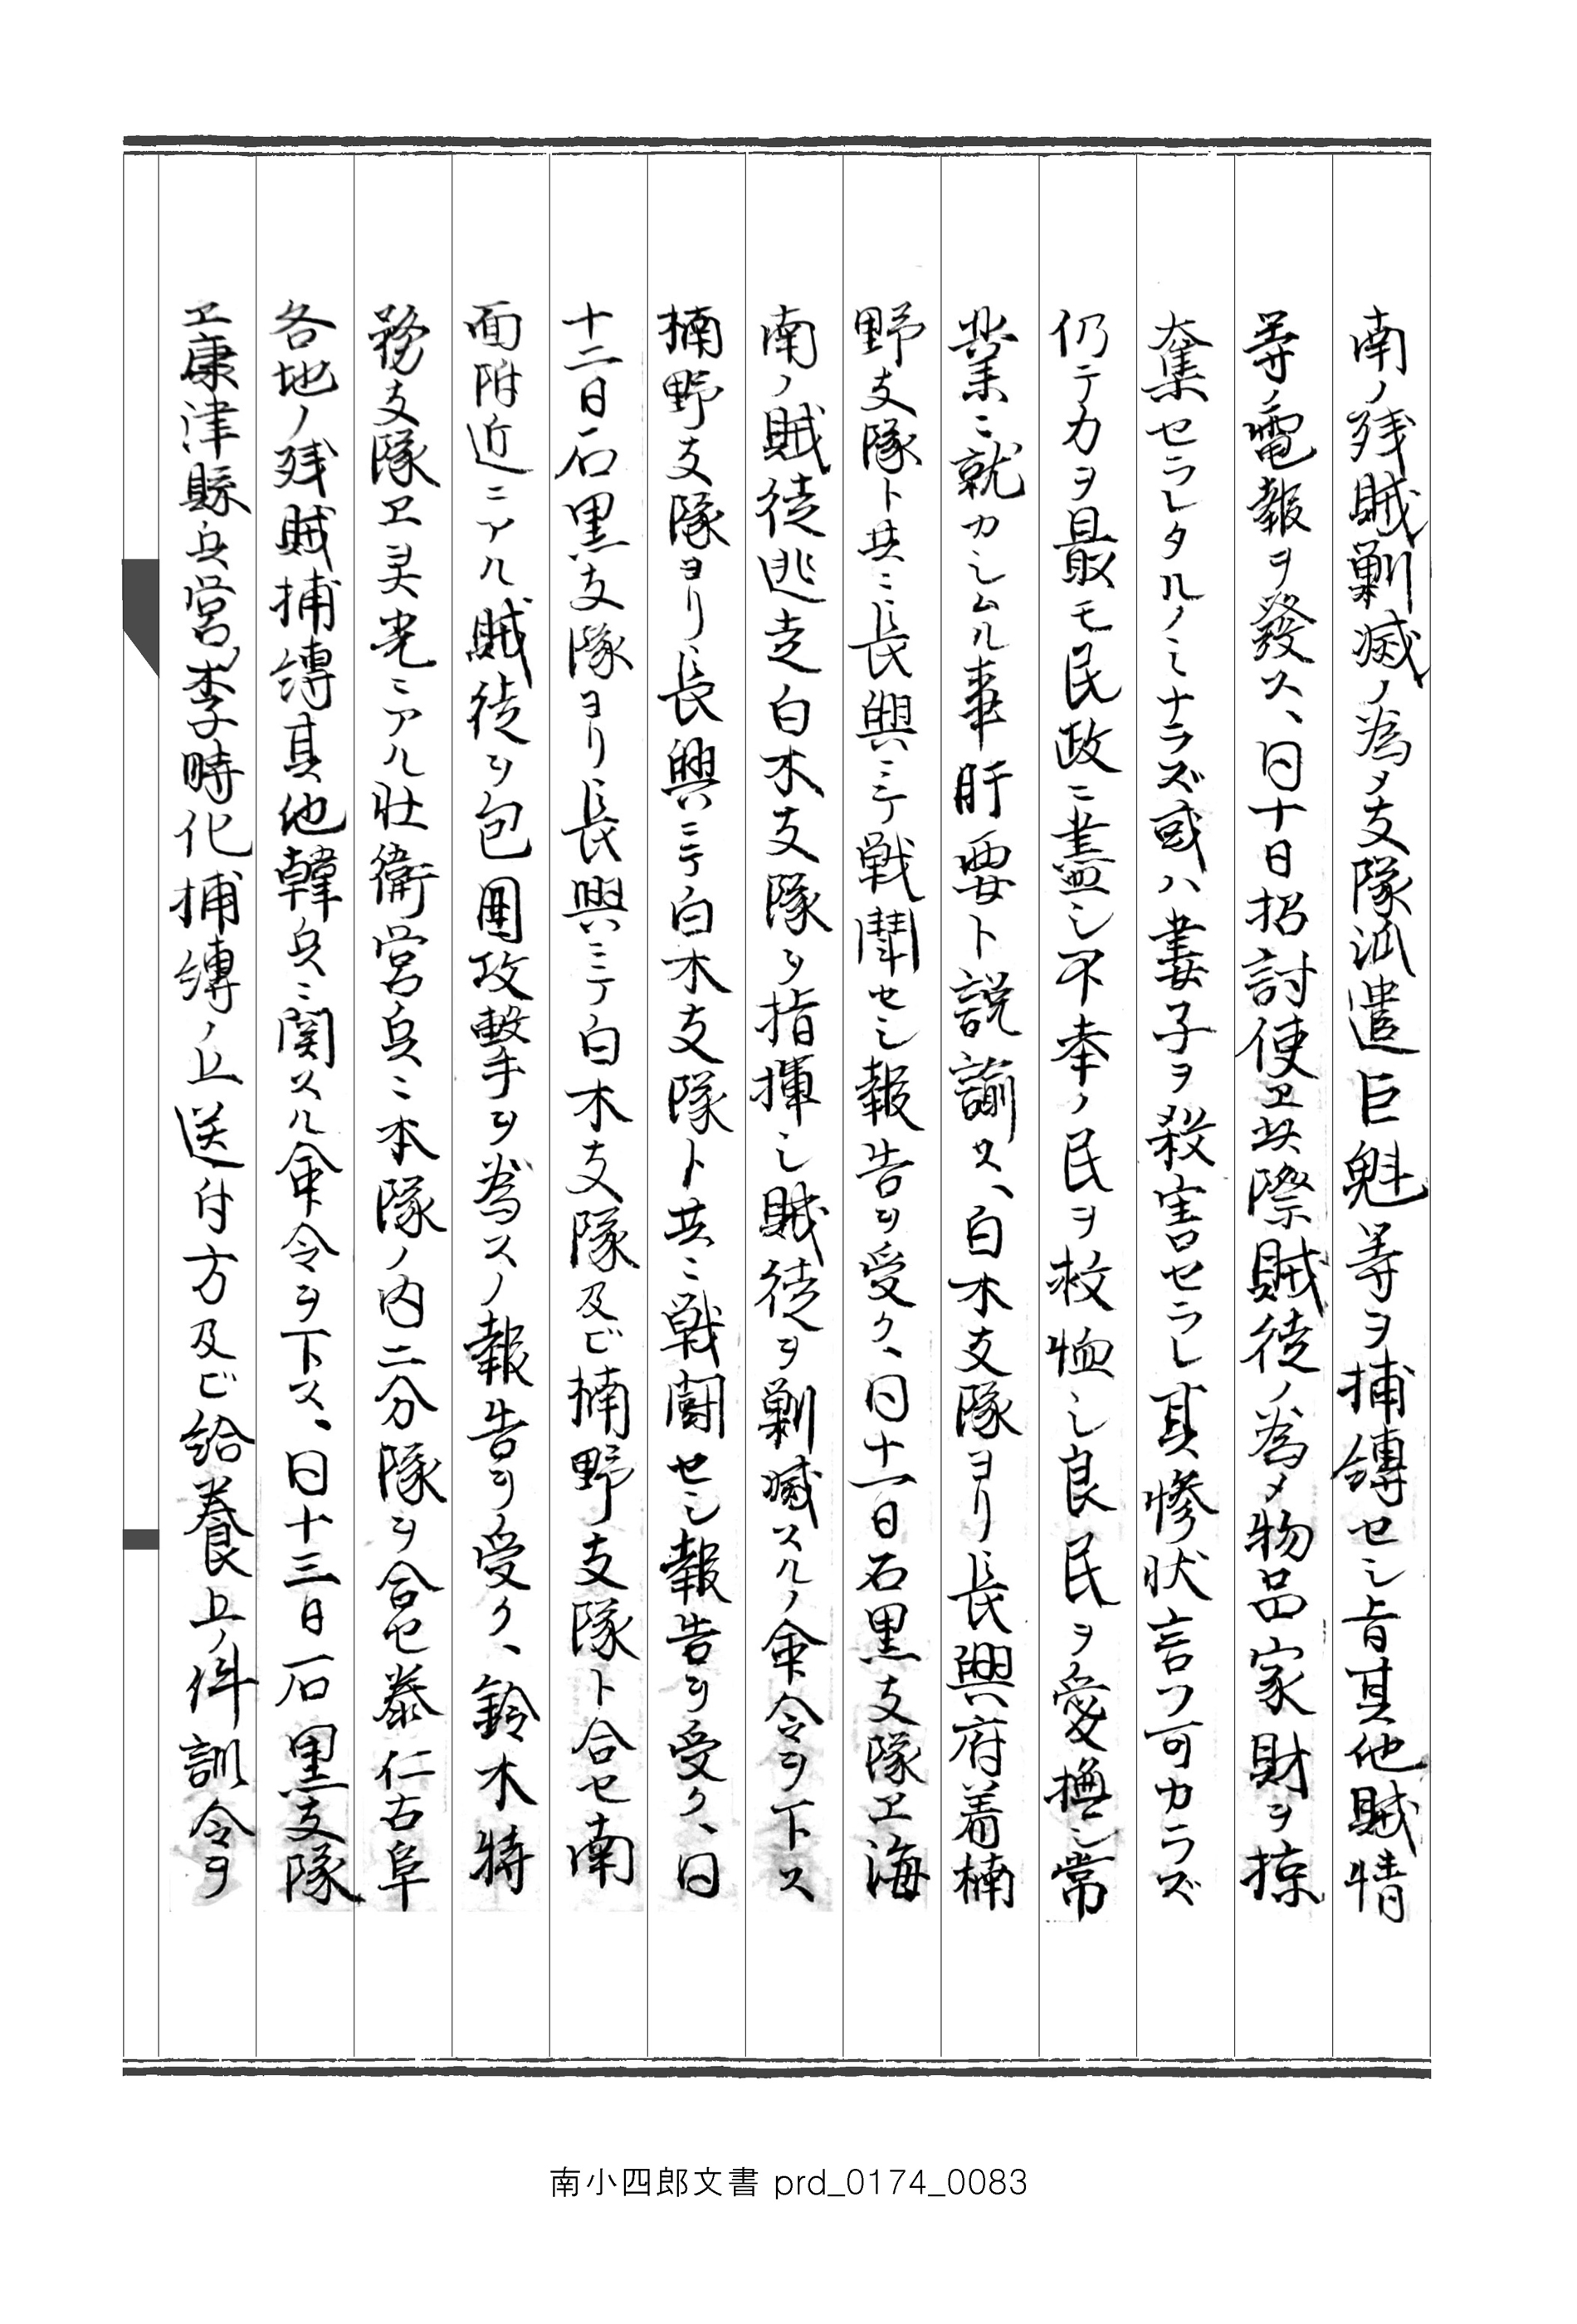 南ノ残賊剿滅ノ為メ支隊派遣巨魁等ヲ捕縛セシ旨其他賊情
等ノ電報ヲ發ス、同十日招討使ヱ此際賊徒ノ為メ物品家財ヲ掠
奪セラレタルノミナラズ或ハ妻子ヲ殺害セラレ其惨状言フ可カラズ
仍テ力ヲ最モ民政ニ盡シ不幸ノ民ヲ救恤シ良民ヲ愛撫シ常
業ニ就カシムル事肝要ト説諭ス、白木支隊ヨリ長興府着楠
野支隊ト共ニ長興ニテ戦鬪セシ報告ヲ受ク、同十一日石黒支隊ヱ海
南ノ賊徒逃走白木支隊ヲ指揮シ賊徒ヲ剿滅スルノ命令ヲ下ス
楠野支隊ヨリ長興ニテ白木支隊ト共ニ戦闘セシ報告ヲ受ク、同
十二日石黒支隊ヨリ長興ニテ白木支隊及ビ楠野支隊ト合セ南
面附近ニアル賊徒ヲ包圍攻撃ヲ為スノ報告ヲ受ク、鈴木特
務支隊ヱ霊光ニアル壮衛営兵ニ本隊ノ内二分隊ヲ合セ泰仁古阜
各地ノ残賊捕縛其他韓兵ニ関スル命令ヲ下ス、同十三日石黒支隊
ヱ康津縣兵営李時化捕縛ノ上送付方及ビ給養上ノ件訓令ヲ
南小四郎文書 prd_0174_0083